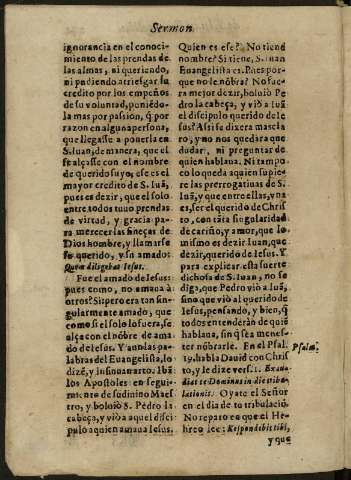 Sermon
ignorancia en el conoci-
miento de las prendas de
las almas, ni queriendo,
ni pudiendo arriesgar su
credito por los empeños
de su voluntad, puniédo-
la mas por passion, q̃ por
razon en alguna persona,
que llegasse a ponerla en
S. Iuan, de manera, que el
se alçasse con el nombre
de querido suyo, esse es el
mayor credito de S. Iuã,
pues es dezir, que el solo
entre todos tuuo prendas
de virtud, y gracia pa-
ra merecer las finezas de
Dios hombre, y llamarse
su querido, y su amado:
Quem diligebat Iesus.
Fue el amado de Iesus:
pues como, no amaua à
otros? Si: pero era tan sin-
gularmente amado, que
como si el solo lo fuera, se
alça con el nõbre de ama-
do de Iesus. Y aun las pa-
labras del Euangelista, lo
dizẽ, y insinuan. Ibã
los Apostoles en segui-
miento de su diuino Maes-
tro, y boluiò S. Pedro la
cabeça, y viò a aquel disci-
pulo a quien amaua Iesus.
Quien es esse? No tiene
nombre? Si tiene, S. Iuan
Euangelista es. Pues por-
que no le nõbra? No fue-
ra mejor dezir, boluiò Pe-
dro la cabeça, y viò a Iuã
el discipulo querido de Ie-
sus? Assi se dixera mas cla-
ro, y no nos quedara que
dudar, ni preguntar de
quien hablaua. Ni tampo-
co lo queda a quien supie-
re las prerrogatiuas de S.
Iuã, y que entre ellas, vna
es, ser el querido de Chris-
to, con tãta singularidad
de cariño, y amor, que lo
mismo es dezir Iuan, que
dezir, querido de Iesus. Y
para explicar esta suerte
dichosa de S. Iuan, no se
diga, que Pedro viò a Iuã,
sino que viò al querido de
Iesus, pensando, y bien, q̃
todos entenderàn de quiẽ
hablaua, sin q̃ sea menes-
ter nõbrarle. En el Psal.
19. habla Dauid con Chris-
Psalm.
to, y le dize vers. 1. Exau-
diat te Dominus in die tribu-
lationis. Oyate el Señor
en el dia de tu tribulaciõ.
No reparo en que el He-
breo lee: Respondebit tibi,
y que